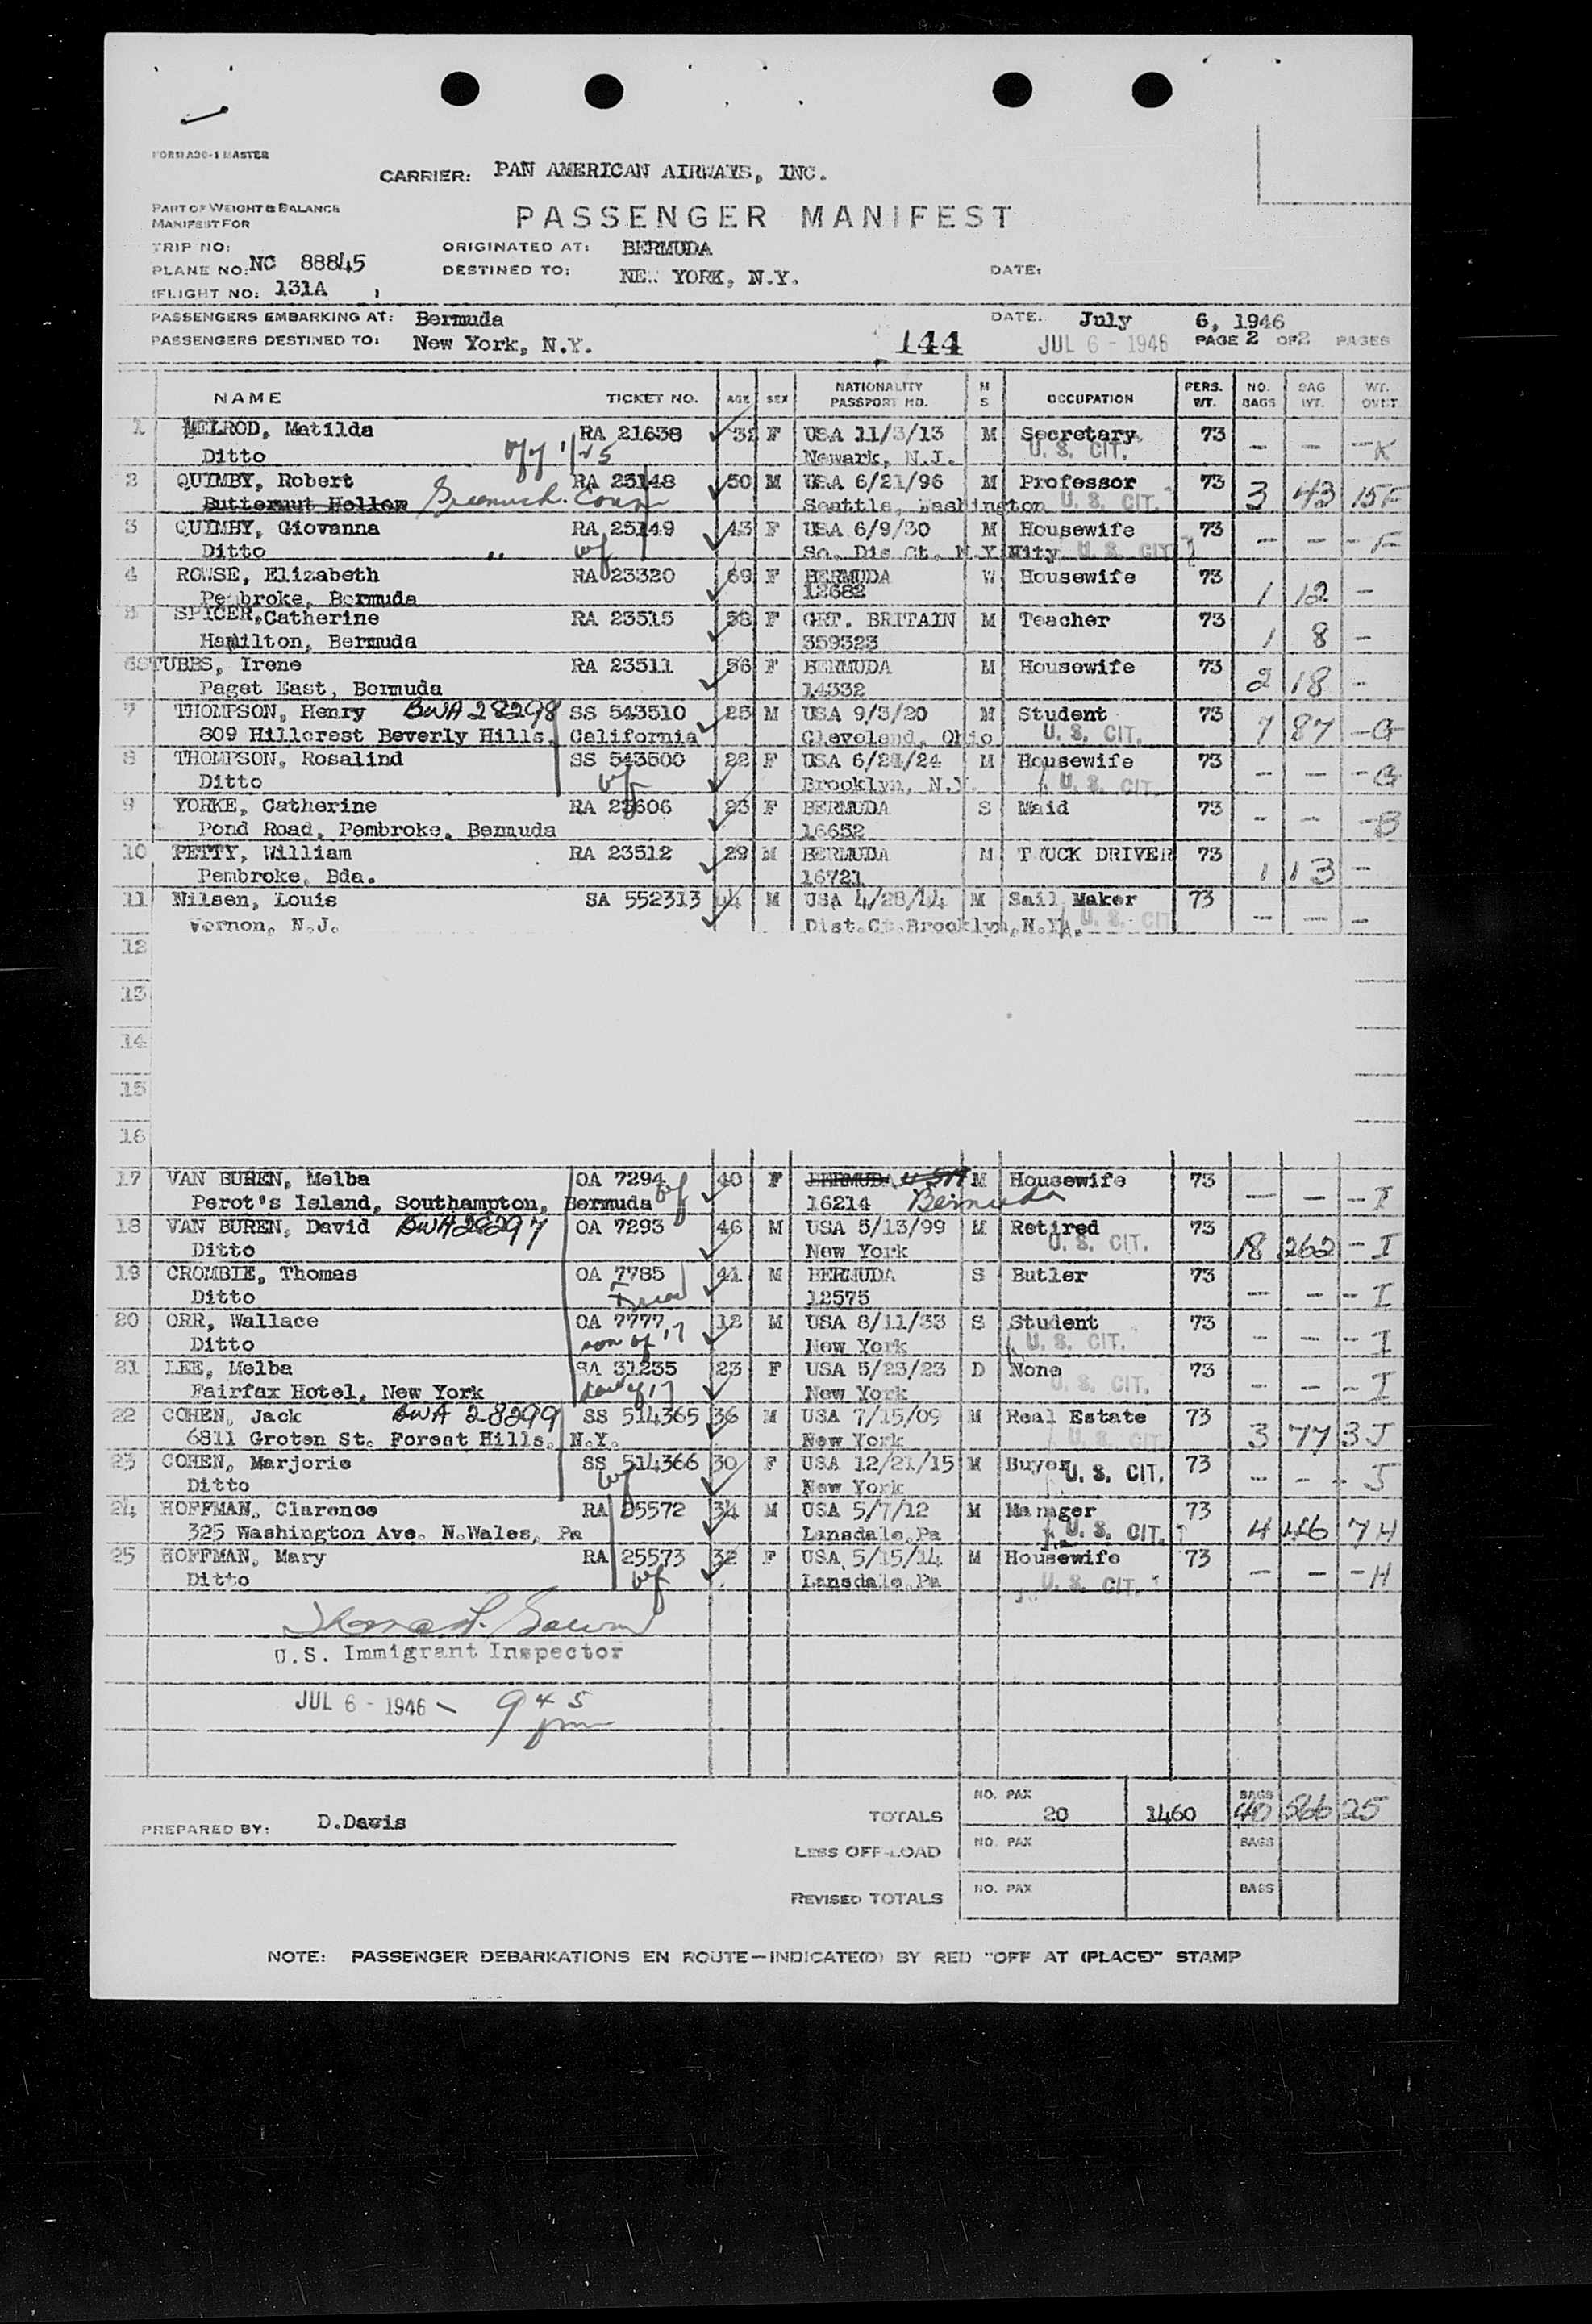 FORM A30-1 MASTER
CARRIER: PAN AMERICAN AIRWAYS, INC.
PART OF WEIGHT & BALANCE
MANIFEST FOR
PASSENGER MANIFEST
TRIP NO: ORIGINATED AT: BERMUDA
PLANE NO: NC 88845 DESTINED TO: NEW YORK, N.Y. DATE:
(FLIGHT NO: 131A )
PASSENGERS EMBARKING AT: Bermuda DATE. July 6, 1946
PASSENGERS DESTINED TO: New York, N.Y. 144 JUL 6 - 1946 PAGE 2 OF 2 PAGES
NAME TICKET NO. AGE SEX NATIONALITY PASSPORT NO. M S OCCUPATION PERS. WT. NO. BAGS BAG WT. WT. OVRT
1 MELROD, Matilda RA 21638 32 F USA 11/3/13 M Secretary 73 - - - K
Ditto Newark, N.J. U. S. CIT.
2 QUIMBY, Robert RA 25148 50 M USA 6/21/96 M Professor 73 3 43 15 F
Butternut Hollow Greenwich. Conn Seattle, Washington U. S. CIT.
3 QUIMBY, Giovanna RA 25149 43 F USA 6/9/30 M Housewife 73 - - - F
Ditto " wf So. Dis Ct. N.Y. City U. S. CIT.
4 ROWSE, Elizabeth RA 23320 69 F BERMUDA W Housewife 73 1 12 -
Pembroke, Bermuda 12682
5 SPICER, Catherine RA 23515 58 F GRT. BRITAIN M Teacher 73 1 8 -
Hamilton, Bermuda 359323
6 STUBBS, Irene RA 23511 56 F BERMUDA M Housewife 73 2 18 -
Paget East, Bermuda 14332
7 THOMPSON, Henry BWA 28298 SS 543510 25 M USA 9/5/20 M Student 73 7 87 - G
809 Hillcrest Beverly Hills, California Cleveland, Ohio U. S. CIT.
8 THOMPSON, Rosalind SS 543500 22 F USA 6/24/24 M Housewife 73 - - - G
Ditto wf Brooklyn, N.Y. U. S. CIT.
9 YORKE, Catherine RA 23606 23 F BERMUDA S Maid 73 - - - B
Pond Road, Pembroke, Bermuda 16652
10 PETTY, William RA 23512 29 M BERMUDA M TRUCK DRIVER 73 1 13 -
Pembroke, Bda. 16721
11 Nilsen, Louis SA 552313 44 M USA 4/28/44 M Sail Maker 73 - - -
Vernon, N.J. Dist.Ct.Brooklyn,N.Y. U. S. CIT
12
13
14
15
16
17 VAN BUREN, Melba OA 7294 wf 40 F BERMUDA USA M Housewife 73 - - - I
Perot's Island, Southampton, Bermuda 16214 Bermuda
18 VAN BUREN, David BWA 28297 OA 7293 46 M USA 5/13/99 M Retired 73 18 262 - I
Ditto New York U. S. CIT.
19 CROMBIE, Thomas OA 7785 41 M BERMUDA S Butler 73 - - - I
Ditto 12575
20 ORR, Wallace OA 7777 12 M USA 8/11/33 S Student 73 - - - I
Ditto son of 17 New York U. S. CIT.
21 LEE, Melba SA 31235 23 F USA 5/23/23 D None 73 - - - I
Fairfax Hotel, New York dau of 17 New York U. S. CIT.
22 COHEN, Jack BWA 28299 SS 514365 36 M USA 7/15/09 M Real Estate 73 3 77 3 J
6811 Groten St. Forest Hills, N.Y. New York U. S. CIT
23 COHEN, Marjorie SS 514366 30 F USA 12/21/15 M Buyer 73 - - - J
Ditto wf New York U. S. CIT.
24 HOFFMAN, Clarence RA 25572 34 M USA 5/7/12 M Manager 73 4 46 7 H
325 Washington Ave. N.Wales, Pa Lansdale, Pa U. S. CIT.
25 HOFFMAN, Mary RA 25573 32 F USA 5/15/14 M Housewife 73 - - - H
Ditto wf Lansdale, Pa U. S. CIT.
U.S. Immigrant Inspector
JUL 6 - 1946 - 9 45 pm
PREPARED BY: D.Davis
TOTALS NO. PAX 20 1460 BAGS 40 25
LESS OFF-LOAD NO. PAX BAGS
REVISED TOTALS NO. PAX BAGS
NOTE: PASSENGER DEBARKATIONS EN ROUTE—INDICATE(D) BY RED "OFF AT (PLACE)" STAMP